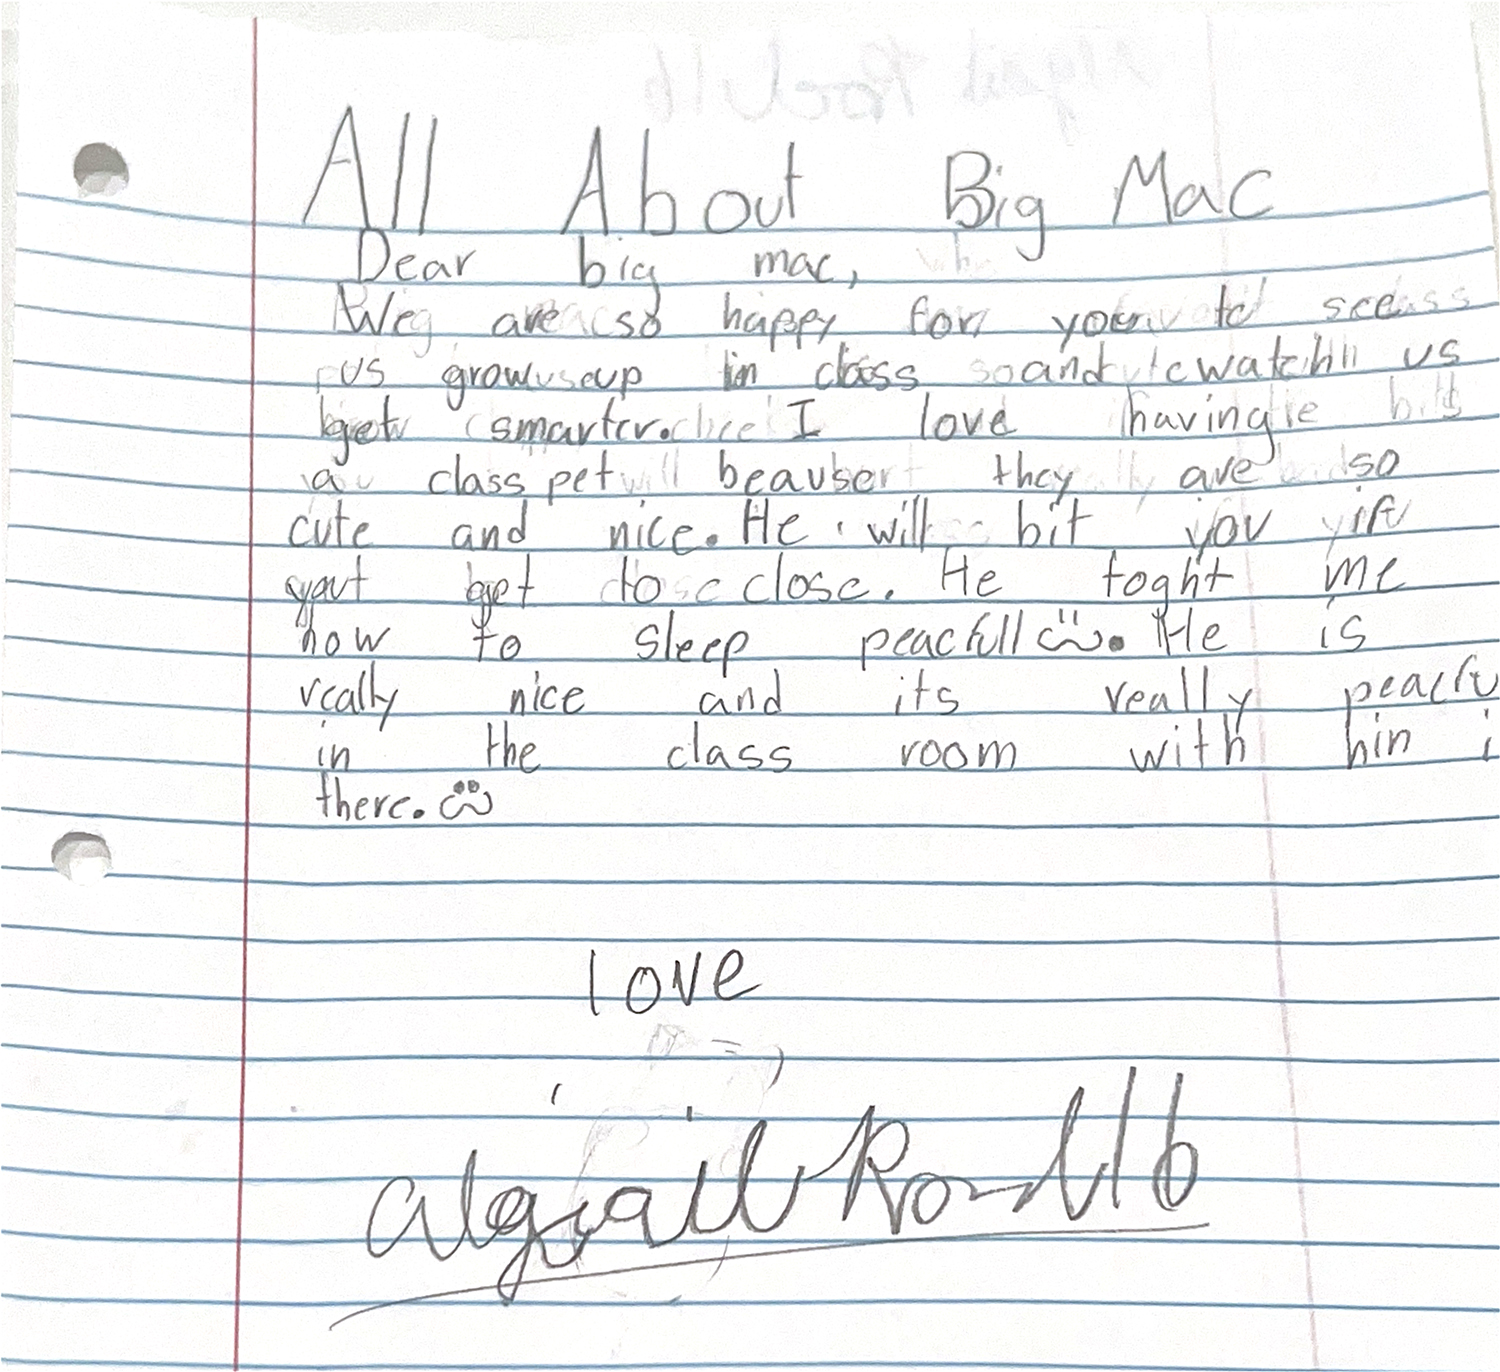 All About Big Mac
Dear big mac,
We are so happy for you to see
us grow up in class and watch us
get smarter. I love having
a class pet beause they are so
cute and nice. He will bit you if
you get to close. He toght me
how to sleep peacfull. He is
really nice and its really peacfu
in the class room with hin i
there.
love